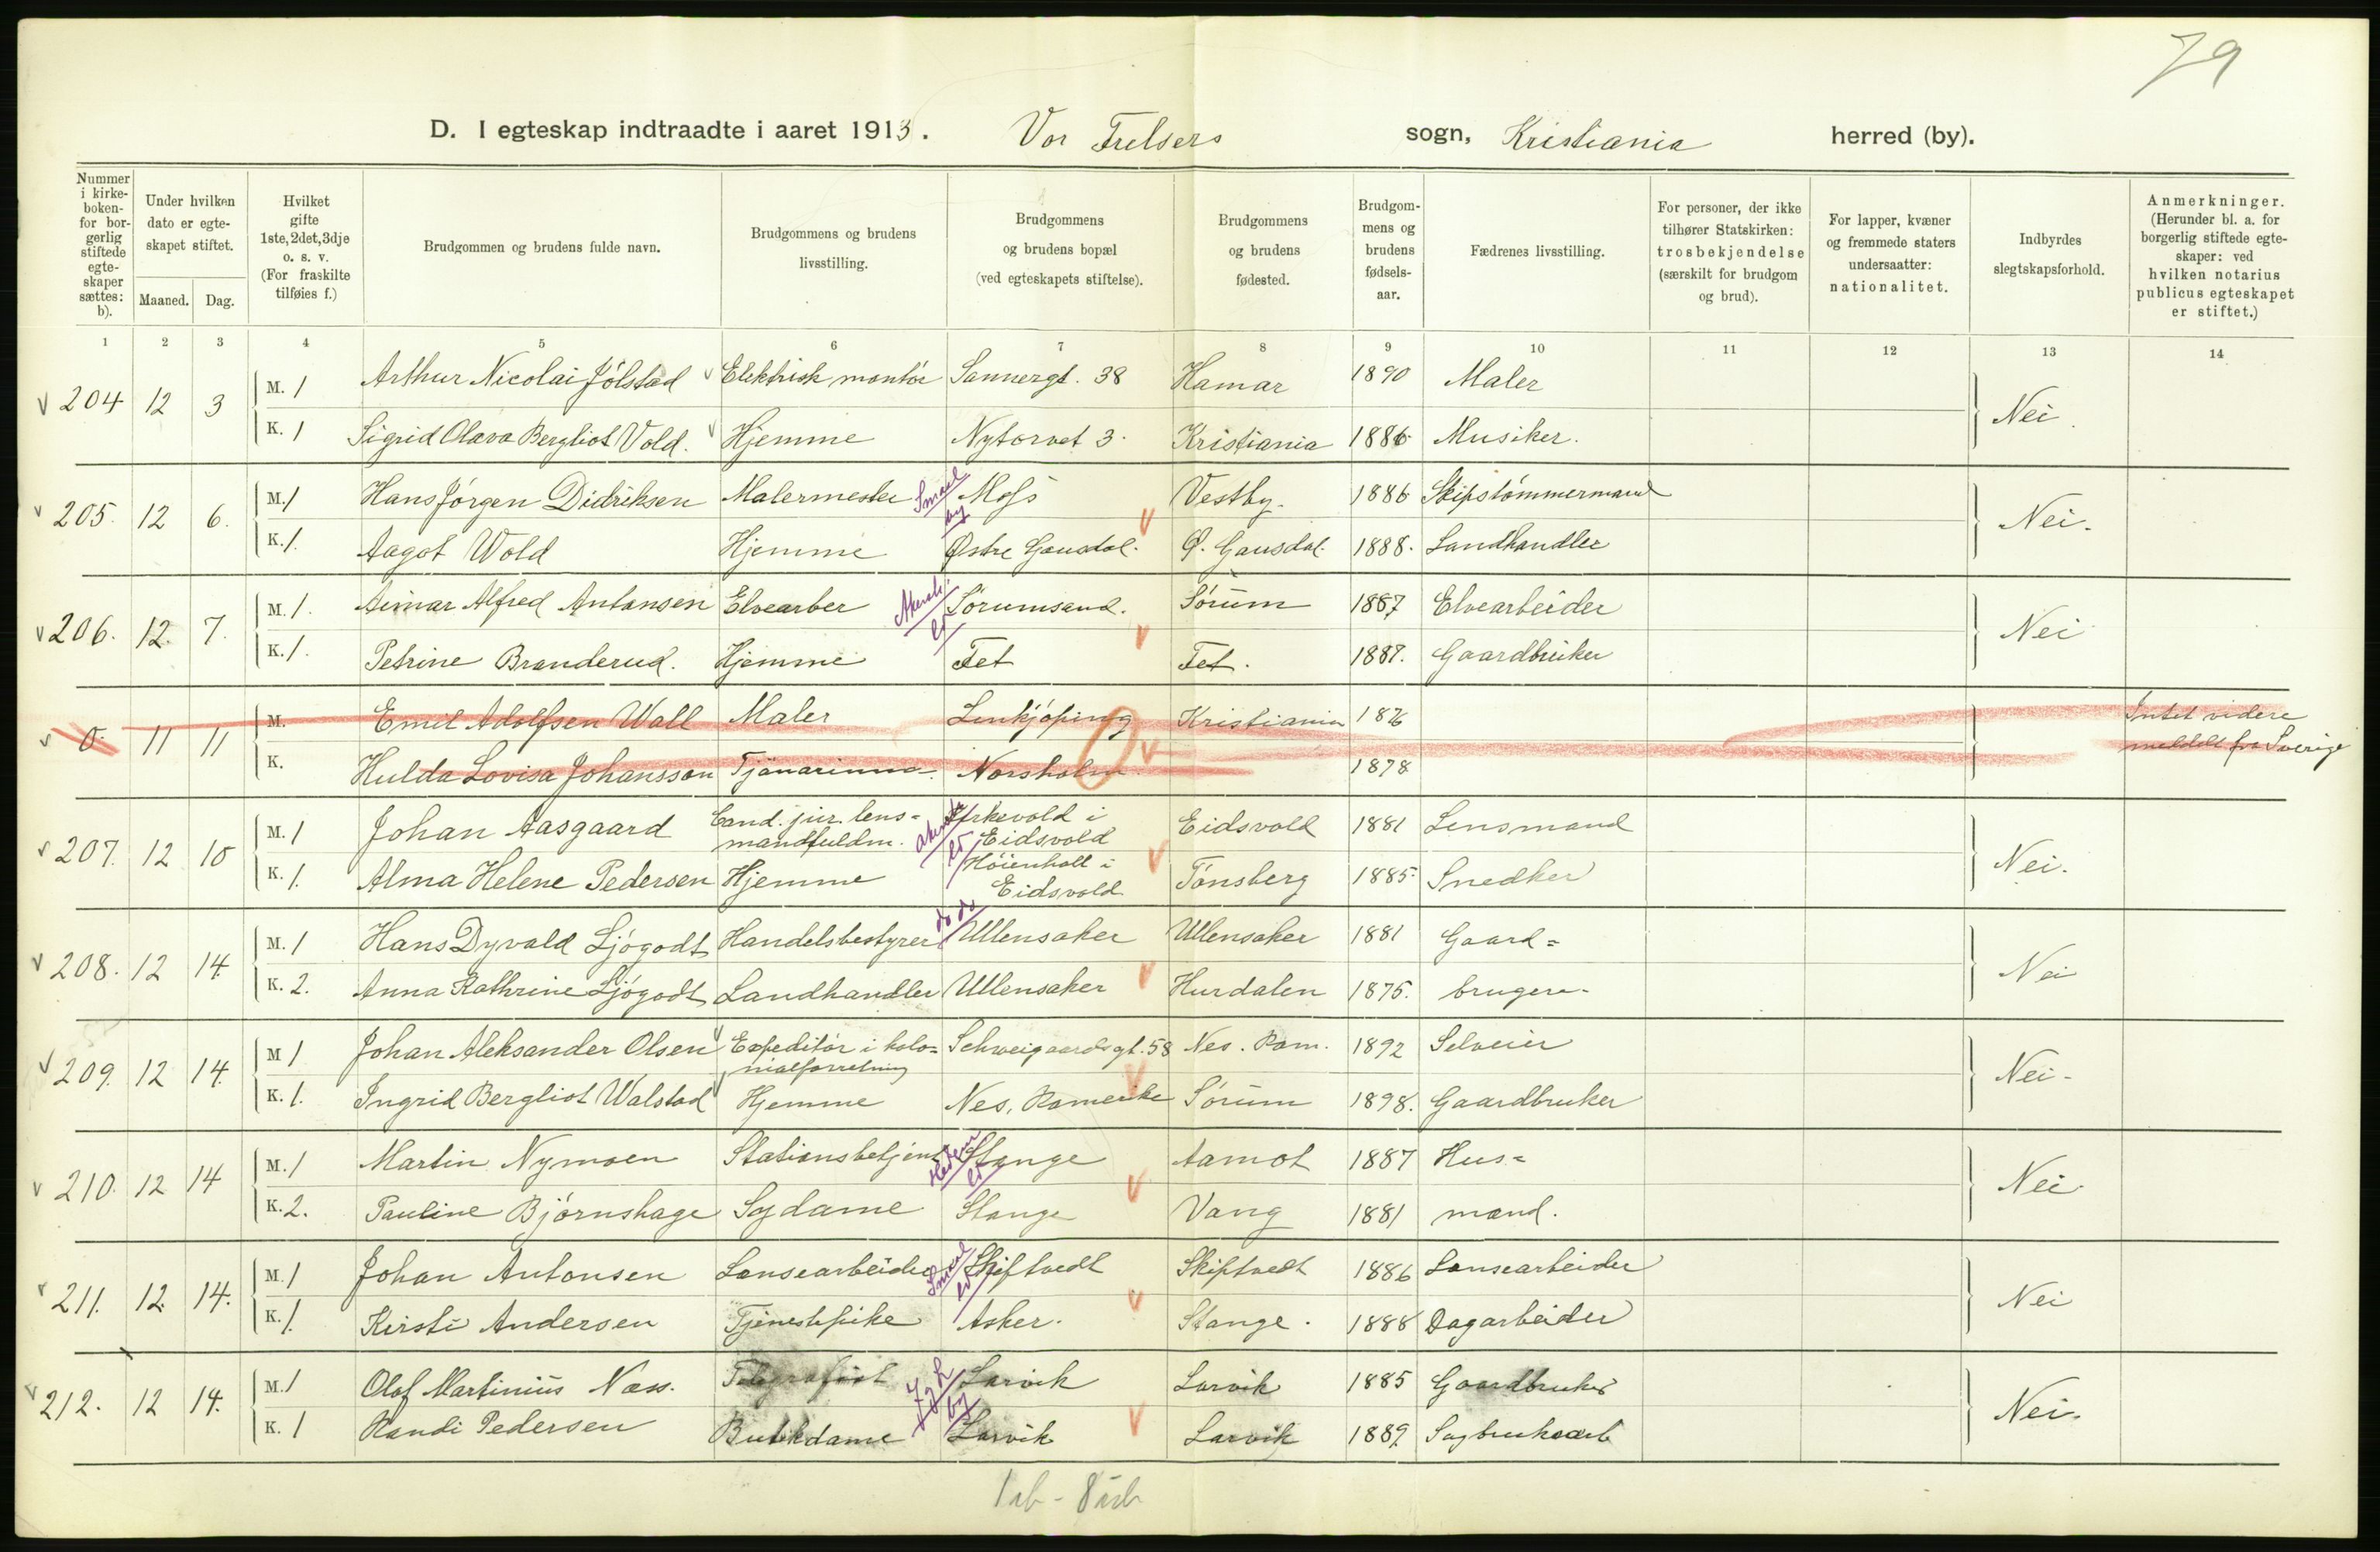 79
D. I egteskap indtraadte i aaret 1913. Vor Frelsers sogn, Kristiania herred (by).
Nummer i kirke-boken- for bor-gerlig stiftede egte-skaper sættes: b).
Under hvilken dato er egte-skapet stiftet.
Maaned. Dag.
Hvilket gifte 1ste, 2det, 3dje o. s. v. (For fraskilte tilføies f.)
Brudgommen og brudens fulde navn.
Brudgommens og brudens livsstilling.
Brudgommens og brudens bopæl (ved egteskapets stiftelse).
Brudgommens og brudens fødested.
Brudgom-mens og brudens fødsels-aar.
Fædrenes livsstilling.
For personer, der ikke tilhører Statskirken: trosbekjendelse (særskilt for brudgom og brud).
For lapper, kvæner og fremmede staters undersaatter: nationalitet.
Indbyrdes slegtskapsforhold.
Anmerkninger. (Herunder bl. a. for borgerlig stiftede egte-skaper: ved hvilken notarius publicus egteskapet er stiftet.)
1 2 3 4 5 6 7 8 9 10 11 12 13 14
204 12 3 M. 1 Arthur Nicolai Jølstad Elektrisk montør Sannergt. 38 Hamar 1890 Maler Nei.
K. 1 Sigrid Olava Bergliot Vold. Hjemme Nytorvet 3. Kristiania 1886 Musiker.
205. 12 6. M. 1 Hans Jørgen Didriksen Malermester Smaal by Moss Vestby. 1886 Skipstømmermand Nei.
K. 1. Aagot Wold Hjemme Østre Gausdal. Ø. Gausdal. 1888. Landhandler
206. 12. 7. M. 1. Aimar Alfred Antonsen Elvearber Sørumsand. Sørum 1887 Elvearbeider Nei
K. 1. Petrine Branderud. Hjemme Fet Fet. 1887. Gaardbruker
0. 11 11 M. Emil Adolfsen Wall Maler Linkjøping Kristiania 1876 Intet videre
K. Hulda Lovisa Johansson Tjänarinna. Norsholm 1878 meddelt fra Sverige
207. 12 10 M. 1 Johan Aasgaard Cand. jur. lens=
mandfuldm. Kirkevold i
Eidsvold Eidsvold 1881 Lensmand Nei.
K. 1. Alma Helene Pedersen Hjemme Høienhall i
Eidsvold Tønsberg 1885 Snedker
208. 12 14. M. 1 Hans Dyvald Ljøgodt Handelsbestyrer do do Ullensaker Ullensaker 1881 Gaard= Nei
K. 2. Anna Kathrine Ljøgodt Landhandler Ullensaker Hurdalen 1875. brugere.
209. 12 14. M 1 Johan Aleksander Olsen Expeditør i kolo=
nialforretning Schweigaards gt. 58 Nes. Rom. 1892 Selveier Nei.
K. 1. Ingrid Bergliot Walstad Hjemme Nes, Romerike Sørum 1898. Gaardbruker
210. 12 14 M. 1 Martin Nymoen Stationsbetjent Stange Aamot 1887 Hus= Nei.
K. 2. Pauline Bjørnshage Sydame Stange Vang 1881 mand.
211. 12. 14. M. 1 Johan Antonsen Lensearbeider Smaal Skiftvedt Skiptvedt 1886 Lensearbeider Nei
K. 1. Kirsti Andersen Tjenestepike Asker. Stange. 1888 Dagarbeider
212. 12 14. M. 1 Olaf Martinius Næss. Telegrafist by Larvik Larvik 1885 Gaardbruker Nei.
K. 1 Randi Pedersen Butikdame Larvik Larvik 1889. Sagbruksarb
1 ub - 8 üb